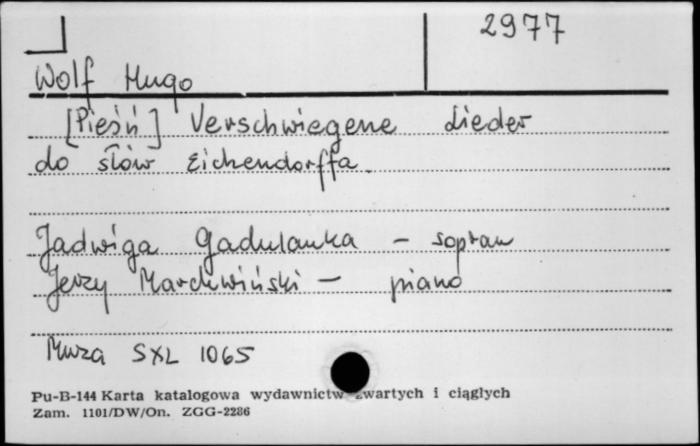 2977
Wolf Hugo
[Pieśń] Verschwiegene Lieder
do słów Eichendorffa.
Jadwiga Gadulanka – sopran
Jerzy Marchwiński – piano
Muza SXL 1065
Pu-B-144 Karta katalogowa wydawnictw zwartych i ciągłych
Zam. 1101/DW/On. ZGG-2286